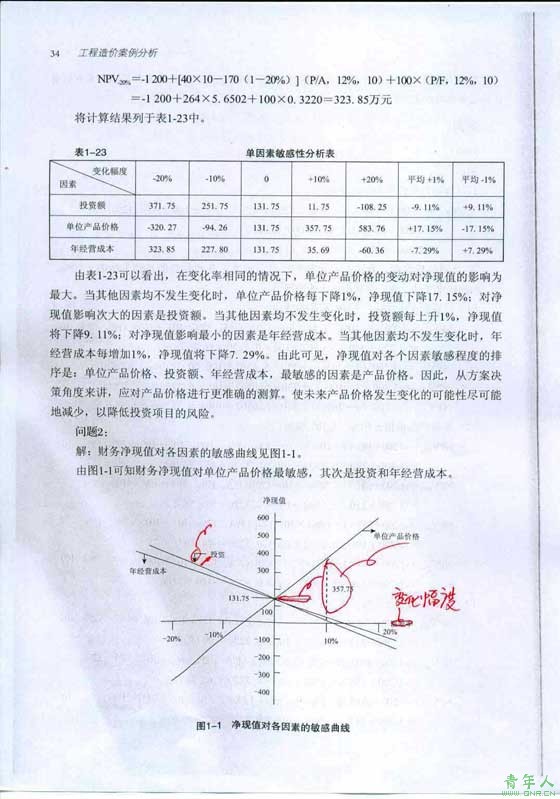 34 工程造价案例分析
NPV-20%=-1 200+[40×10－170（1－20%）]（P/A，12%，10）+100×（P/F，12%，10）
=-1 200+264×5. 6502+100×0. 3220=323. 85万元
将计算结果列于表1-23中。
表1-23 单因素敏感性分析表
变化幅度
因素 -20% -10% 0 +10% +20% 平均 +1% 平均 -1%
投资额 371. 75 251. 75 131. 75 11. 75 -108. 25 -9. 11% +9. 11%
单位产品价格 -320. 27 -94. 26 131. 75 357. 75 583. 76 +17. 15% -17. 15%
年经营成本 323. 85 227. 80 131. 75 35. 69 -60. 36 -7. 29% +7. 29%
由表1-23可以看出，在变化率相同的情况下，单位产品价格的变动对净现值的影响为
最大。当其他因素均不发生变化时，单位产品价格每下降1%，净现值下降17. 15%；对净
现值影响次大的因素是投资额。当其他因素均不发生变化时，投资额每上升1%，净现值
将下降9. 11%；对净现值影响最小的因素是年经营成本。当其他因素均不发生变化时，年
经营成本每增加1%，净现值将下降7. 29%。由此可见，净现值对各个因素敏感程度的排
序是：单位产品价格、投资额、年经营成本，最敏感的因素是产品价格。因此，从方案决
策角度来讲，应对产品价格进行更准确的测算。使未来产品价格发生变化的可能性尽可能
地减少，以降低投资项目的风险。
问题2：
解：财务净现值对各因素的敏感曲线见图1-1。
由图1-1可知财务净现值对单位产品价格最敏感，其次是投资和年经营成本。
净现值
600
500
单位产品价格
400
投资
300
年经营成本
357.75
131.75
变化幅度
100
-20% -10% 10% 20%
-100
-200
-300
-400
图1-1 净现值对各因素的敏感曲线
青年人
www.QNR.CN